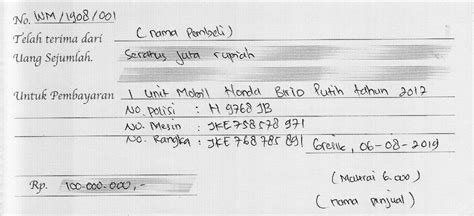 No. WM/1908/001
Telah terima dari (nama Pembeli)
Uang Sejumlah. Seratus Juta rupiah
Untuk Pembayaran 1 Unit Mobil Honda Brio Putih tahun 2012
No. Polisi : H 9768 JB
No. Mesin : JKE758578971
No. Rangka : JKE768785891
Gresik, 06-08-2019
Rp. 100.000.000,-
(Matrai 6.000)
(nama pinjual)